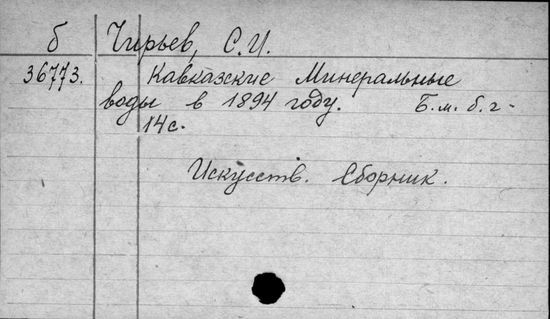 б Чирьев, С.И.
36773. Кавказские Минеральные
воды в 1894 году. Б.м.б.г.
14с.
Искусств. Сборник.